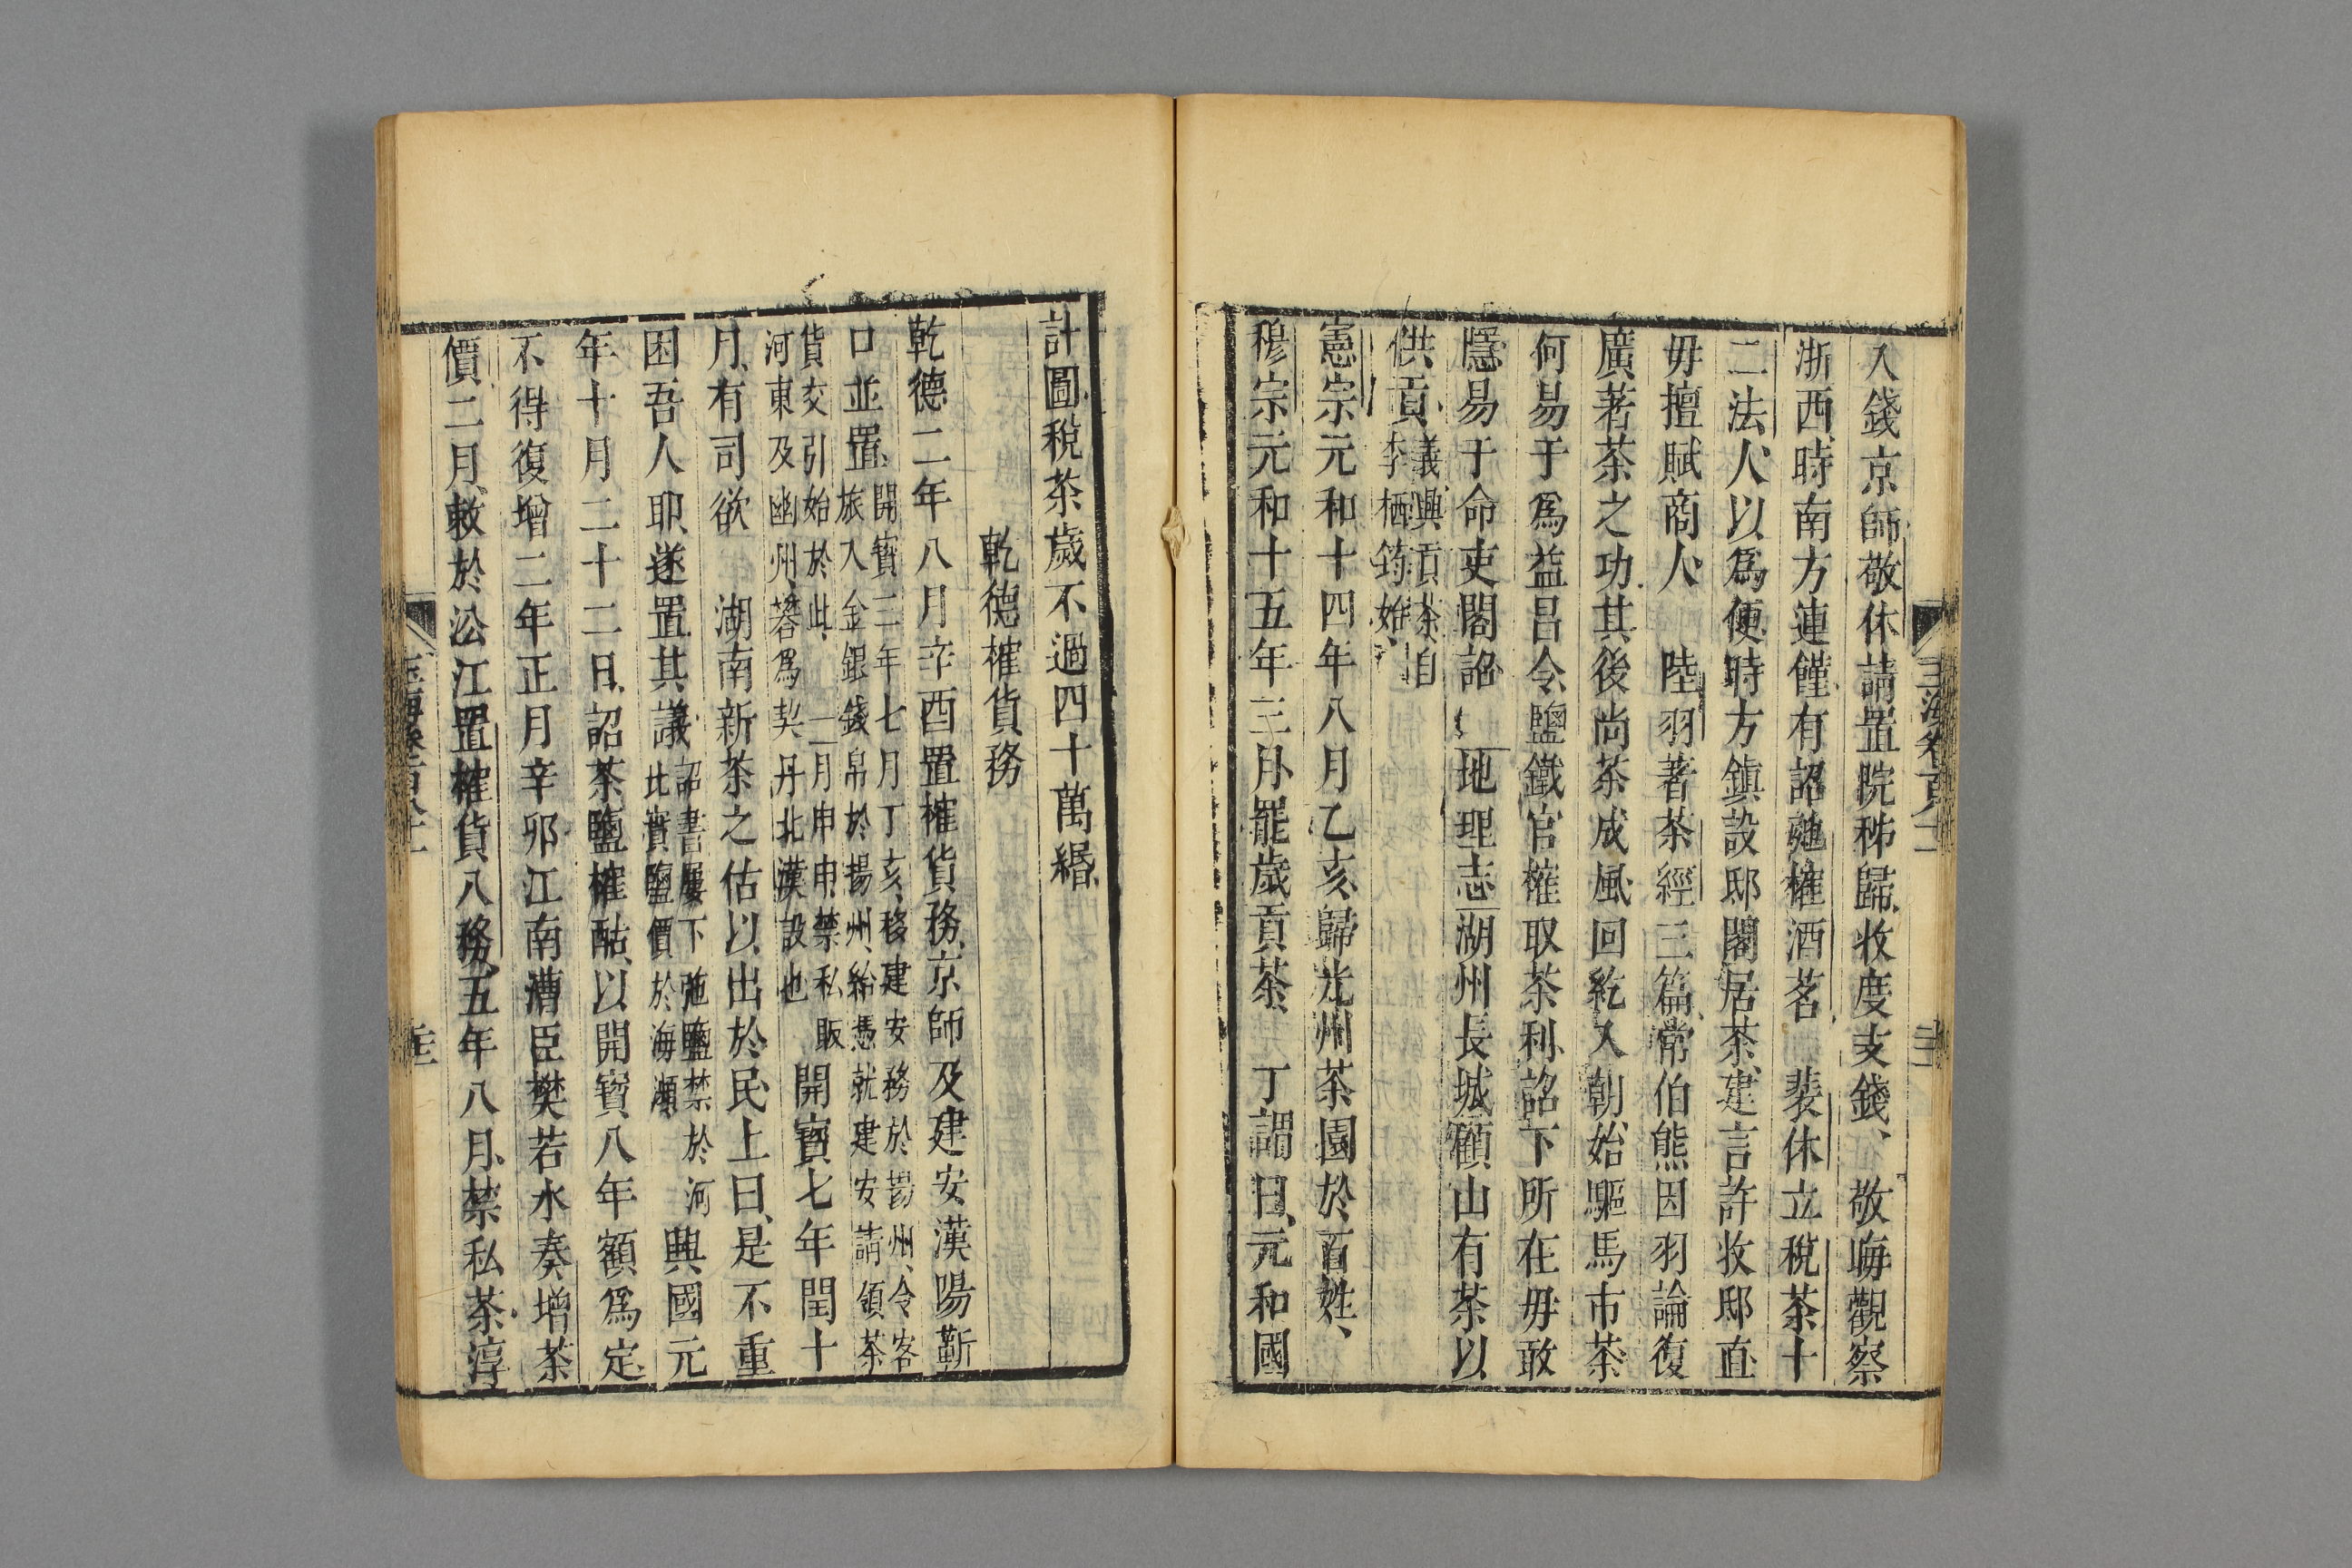 入錢京師敬休請置院秭歸收度支錢 敬晦觀察
浙西時南方連饉有詔弛榷酒茗 裴休立稅茶十
二法人以爲便時方鎮設邸閣居茶建言許收邸直
毋擅賦商人 陸羽著茶經三篇常伯熊因羽論復
廣著茶之功其後尚茶成風回紇入朝始驅馬市茶
何易于爲益昌令鹽鐵官榷取茶利詔下所在毋敢
隱易于命吏閣詔 地理志湖州長城顧山有茶以
供貢義興貢茶自
李栖筠始
憲宗元和十四年八月乙亥歸光州茶園於百姓
穆宗元和十五年三月罷歲貢茶 丁謂曰元和國
計圖稅茶歲不過四十萬緡
乾德榷貨務
乾德二年八月辛酉置榷貨務京師及建安漢陽蘄
口並置開寶三年七月丁亥移建安務於揚州令客
旅入金銀錢帛於揚州給憑就建安請領茶
貨交引始於此 二月申申禁私販
河東及幽州蓉爲契丹北漢設也 開寶七年閏十
月有司欲 湖南新茶之估以出於民上曰是不重
困吾人耶遂置其議詔書屢下弛鹽禁於河
比實鹽價於海瀕 興國元
年十月二十二日詔茶鹽榷酤以開寶八年額爲定
不得復增二年正月辛卯江南漕臣樊若水奏增茶
價二月敕於㳂江置榷貨八務五年八月禁私茶淳